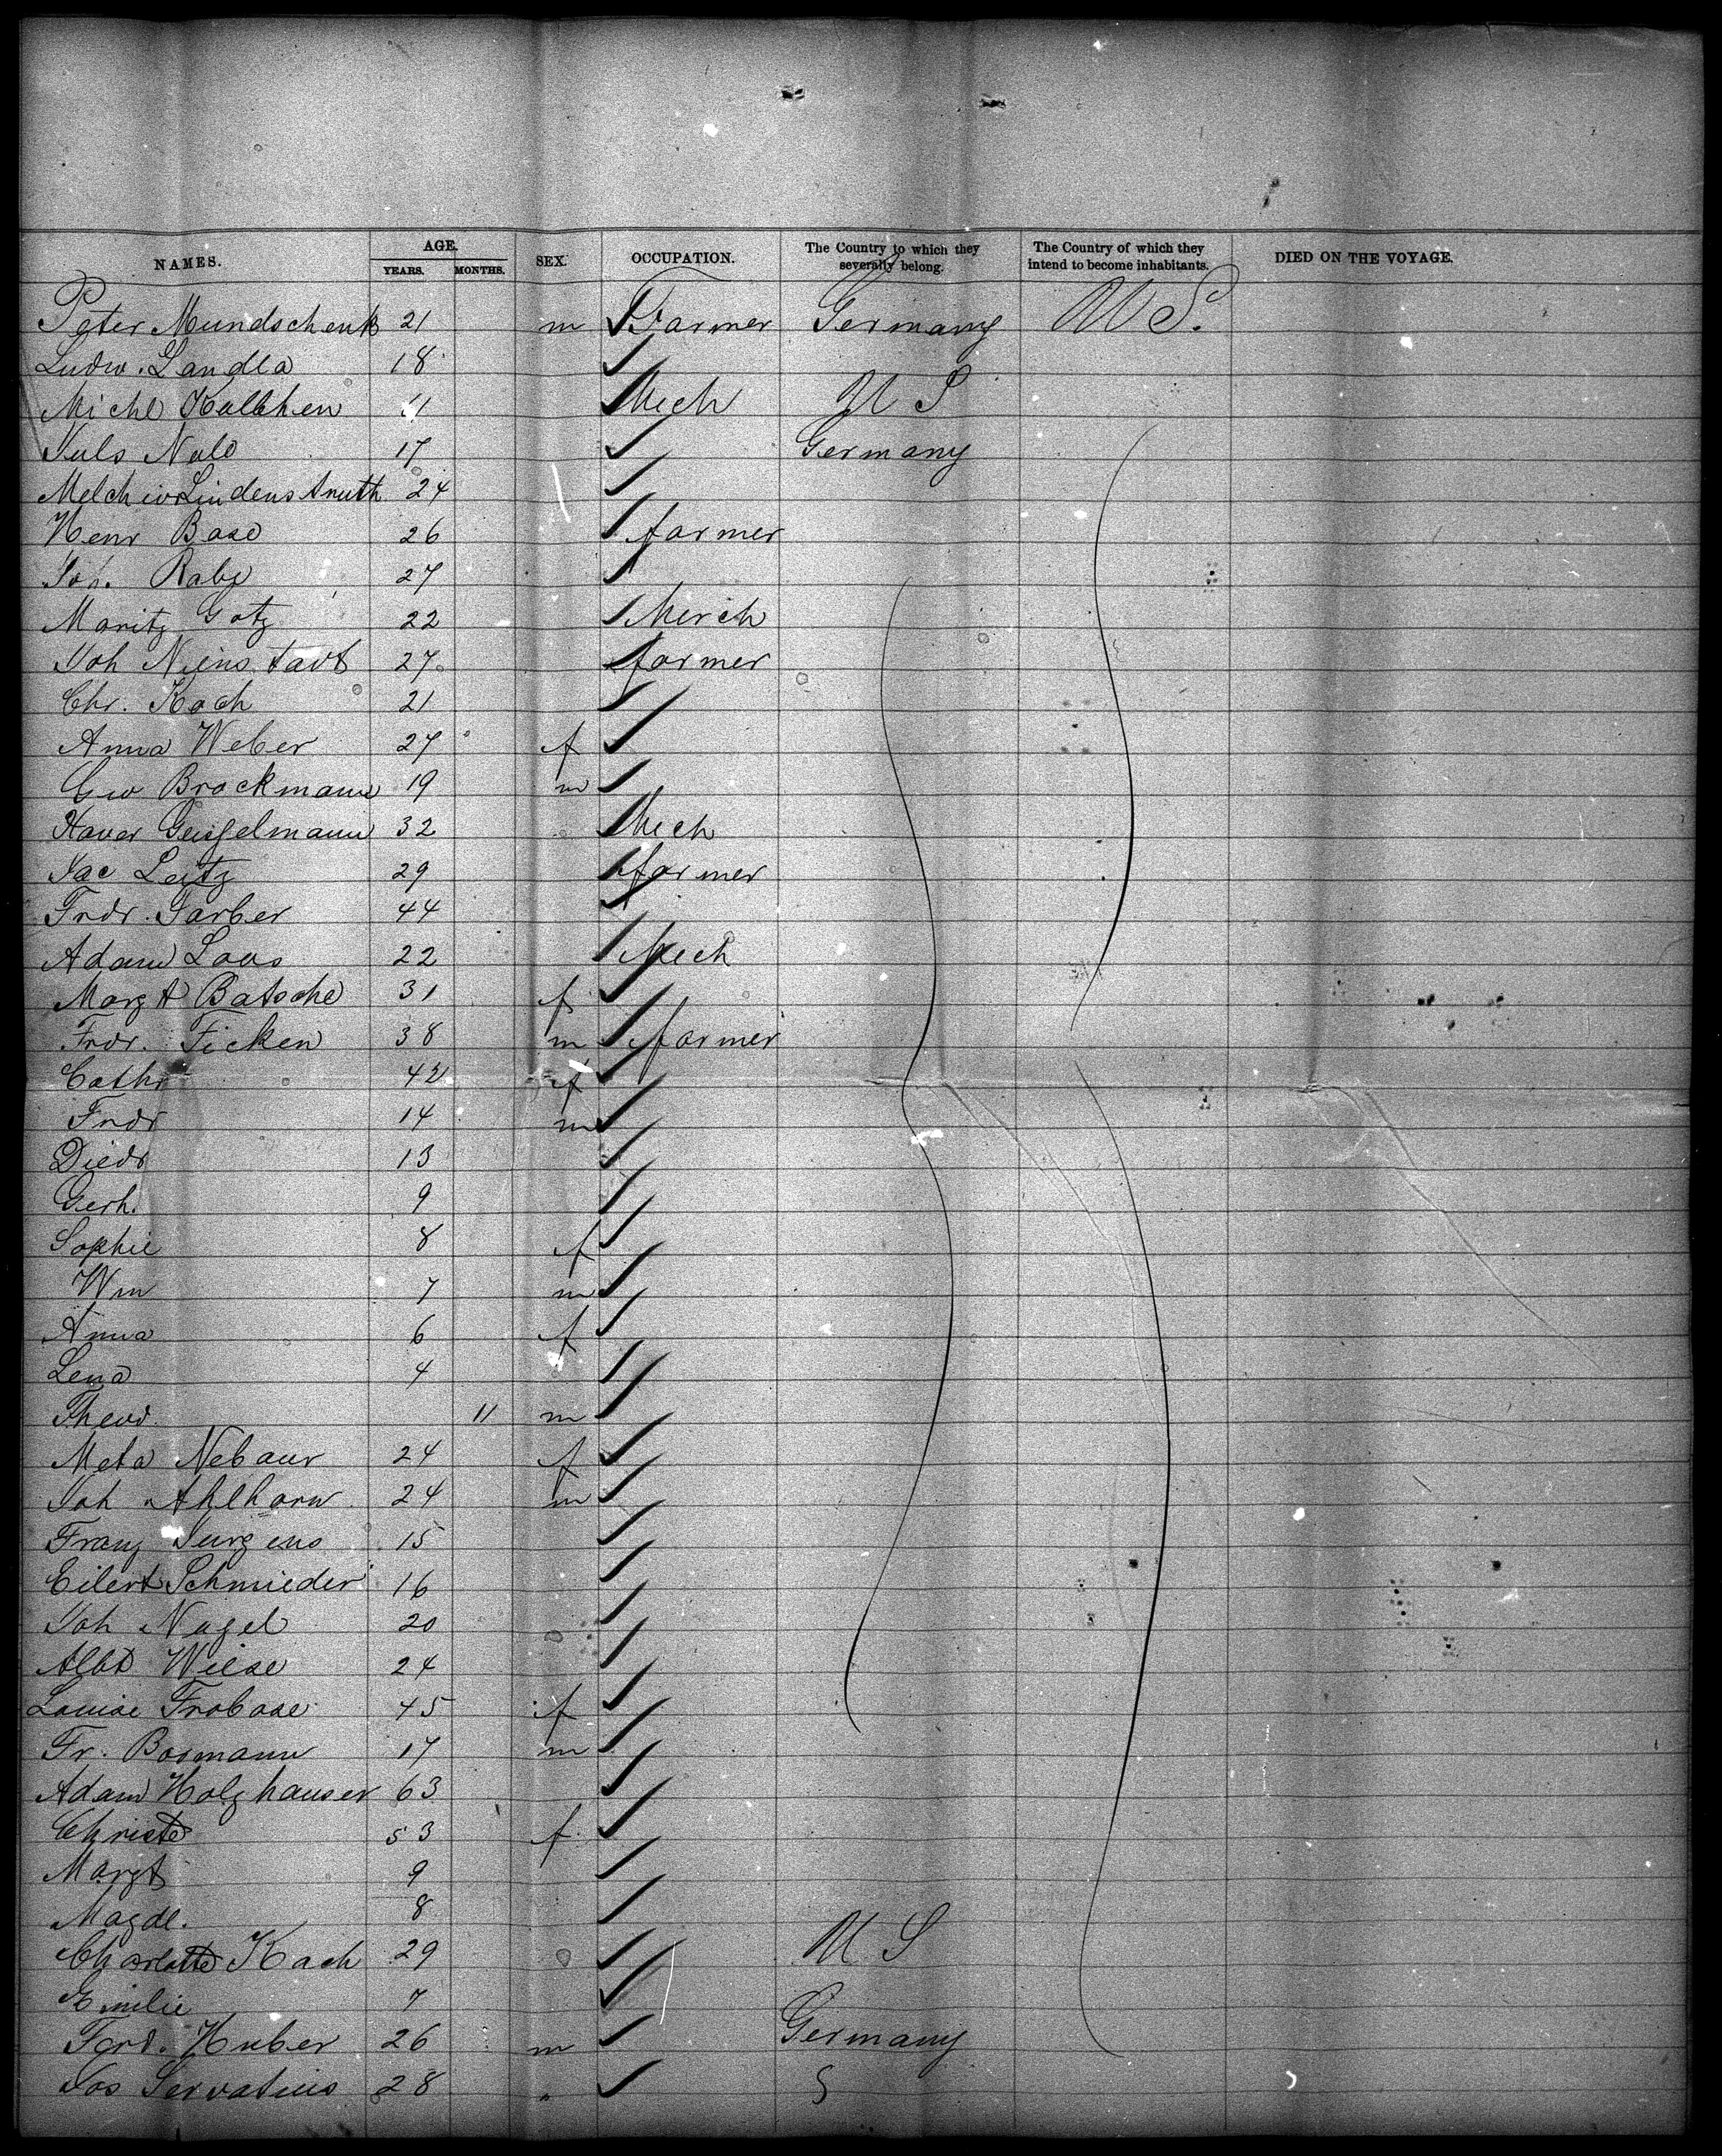 NAMES. AGE. YEARS. MONTHS. SEX. OCCUPATION. The Country to which they severally belong. The Country of which they intend to become inhabitants. DIED ON THE VOYAGE.
Peter Mundschenk 21 m Farmer Germany U S.
Ludw. Landla 18
Michl 11 Mech U S
Juls Nalo 17 Germany
Melchior Lindenstruth 24
Henr Base 26 farmer
Joh. Rabe 27
Moritz Gotz 22 Merch
Joh Nienstadt 27 farmer
Chr. Koch 21
Anna Weber 27 f
Geo Brockmann 19 m
Xaver Geigelmann 32 Mech
Jac Leitz 29 farmer
Frdr. Garber 44
Adam Laos 22 Mech
Margt Batsche 31 f
Frdr. Ficken 38 m farmer
Cathr 42 f
Frdr 14 m
Diedr 13
Gerh. 9
Sophie 8 f
Wm 7 m
Anna 6 f
Lena 4
Theod. 11 m
Meta Nebaur 24 f
Joh Ahlhorn 24 m
Franz Jurgens 15
Eilert Schmieder 16
Joh Nagel 20
Albt Wiese 24
Louise Frobose 45 f
Fr. Bosmann 17 m
Adam Holzhauser 63
Christe 53 f
Margt 9
Magdl. 8
Charlotte Kach 29 U S
Emilie 7
Ferd. Huber 26 m Germany
Jos Servatius 28 "